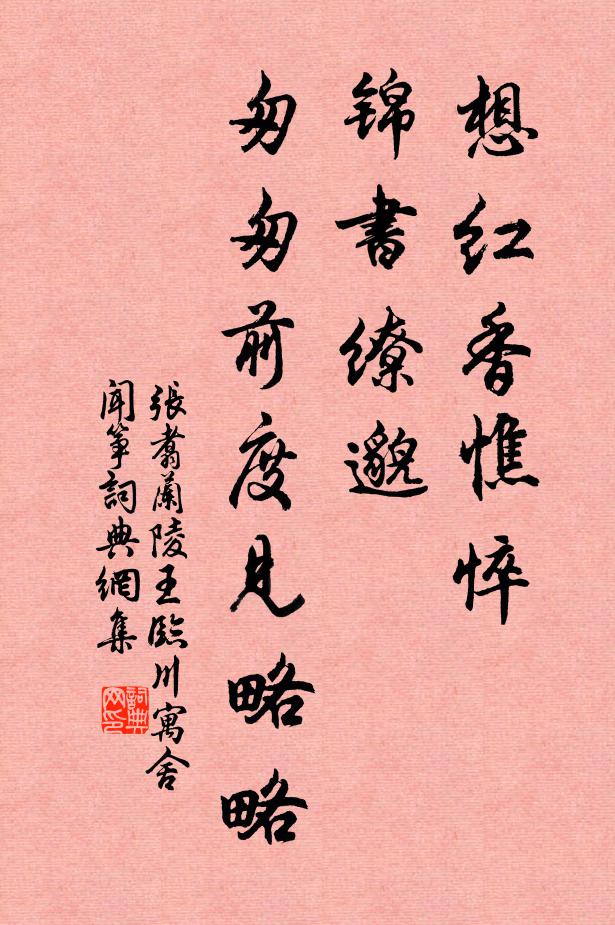 想红香憔悴
锦書缭邈
匆匆前度見略略
張翥蘭陵王臨川寓舍
聞筝詞典網集
詞典
网印